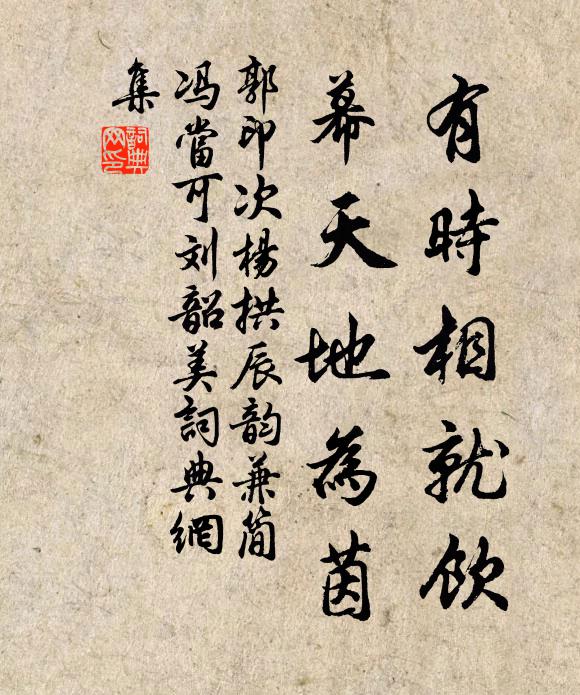 有時相就飲
幕天地為茵
郭印次楊拱辰韵兼简
冯當可刘韶美詞典網
集
詞典网印